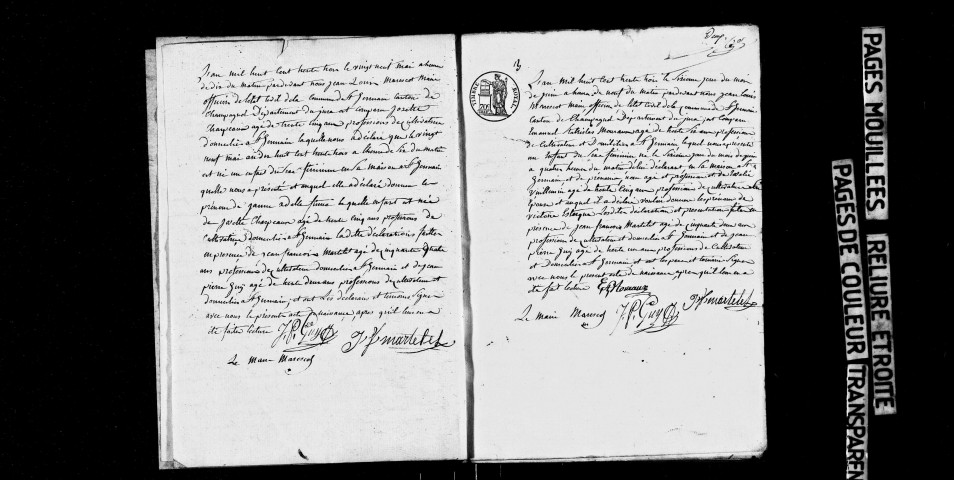 L'an mil huit cent trente trois le vingt neuf mai a heure
de dix du matin pardevant nous jean Louis Marescot Maire
officier de l'état civil de la commune de St Germain canton de
Champagnol Département du jura est comparu josette
Charpeaux agé de trente cinq ans professions de cultivatrice
domicilié a St Germain laquelle nous a déclaré que le vingt
neuf mai an dix huit cent trente trois a l'heure de six du matin
est né un enfant du sexe féminin en sa maison a St Germain
quelle nous a présenté et auquel elle a déclaré donner le
prénom de jeanne adelle laquelle enfant est née
de josette Charpeaux agé de trente cinq ans professions de
cultivatrice domicilié a St Germain la dite déclarations faites
en presence de jean francois Martelet agé de cinquante quatre
ans professions de cultivateur domicilié a St Germain et de jean
pierre Guy agé de trente deux ans professions de cultivateur et
domicilié a St Germain, et ont les déclarant et temoins signé
avec nous le présente acte de naissance après qu'il leur en a
été faites lecture J. P. Guy J. F. martelet
Le Maire Marescot
Deux
3
TIMBRE ROYAL
L'an mil huit cent trente trois le sixieme jour du mois
de juin a heure de neuf du matin pardevant nous jean Louis
Marescot maire officier de l'état civil de la commune de St Germain
Canton de Champagnol Departement du jura est Comparu
Emanuel Monnaux agé de trente six ans profession
de Cultivateur et domicilié a St Germain lequel nous a présenté
un Enfant du sexe feminin né le sixieme jour du mois de juin
a quatre heures du matin de lui déclarant en sa maison a St
Germain, et de
Vuillemin agé de trente cinq ans profession de cultivatrice son
Epouse et auquel il a déclaré vouloir donner les prenoms de
victoire Les dites déclaration et presentation faites en
presence de jean francois Martelet agé de cinquante deux ans
profession de cultivateur et domicilié a St Germain et de jean
pierre Guy agé de trente un ans professions de Cultivateur
et Domicilié a St Germain et ont les pere et temoins signés
avec nous le present acte de naissance apres qu'il leur en a
été fait lecture
Le Maire Marescot J. P. Guy J. F. martelet
PAGES MOUILLEES
RELIURE ETROITE
PAGES DE COULEUR
TRANSPAREN